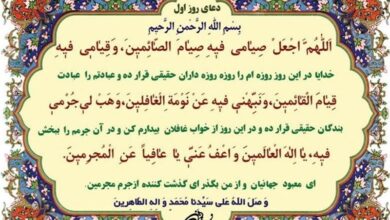 دعای روز اول
بِسْمِ اللهِ الرَّحْمنِ الرَّحیمِ
اَللّهُمَّ اجْعَلْ صِیامی فیهِ صِیامَ الصّائِمینَ، وَقِیامی فیهِ
خدایا در این روز روزه ام را روزه روزه داران حقیقی قرار ده و عبادتم را عبادت
قِیامَ الْقائِمینَ، وَنَبِّهْنی فیهِ عَنْ نَوْمَةِ الْغافِلینَ، وَهَبْ لی جُرْمی
بندگان حقیقی قرار ده و در این روز از خواب غافلان بیدارم کن و در آن جرمم را ببخش
فیهِ، یا اِلهَ الْعالَمینَ وَاعْفُ عَنّی یا عافِیاً عَنِ الْمُجرِمینَ.
ای معبود جهانیان و از من بگذر ای گذشت کننده ازجرم مجرمین.
وَ صَلَّ اللهُ عَلی سَیِّدِنا مُحَمَّدٍ وَ الِهِ الطّاهِرینَ